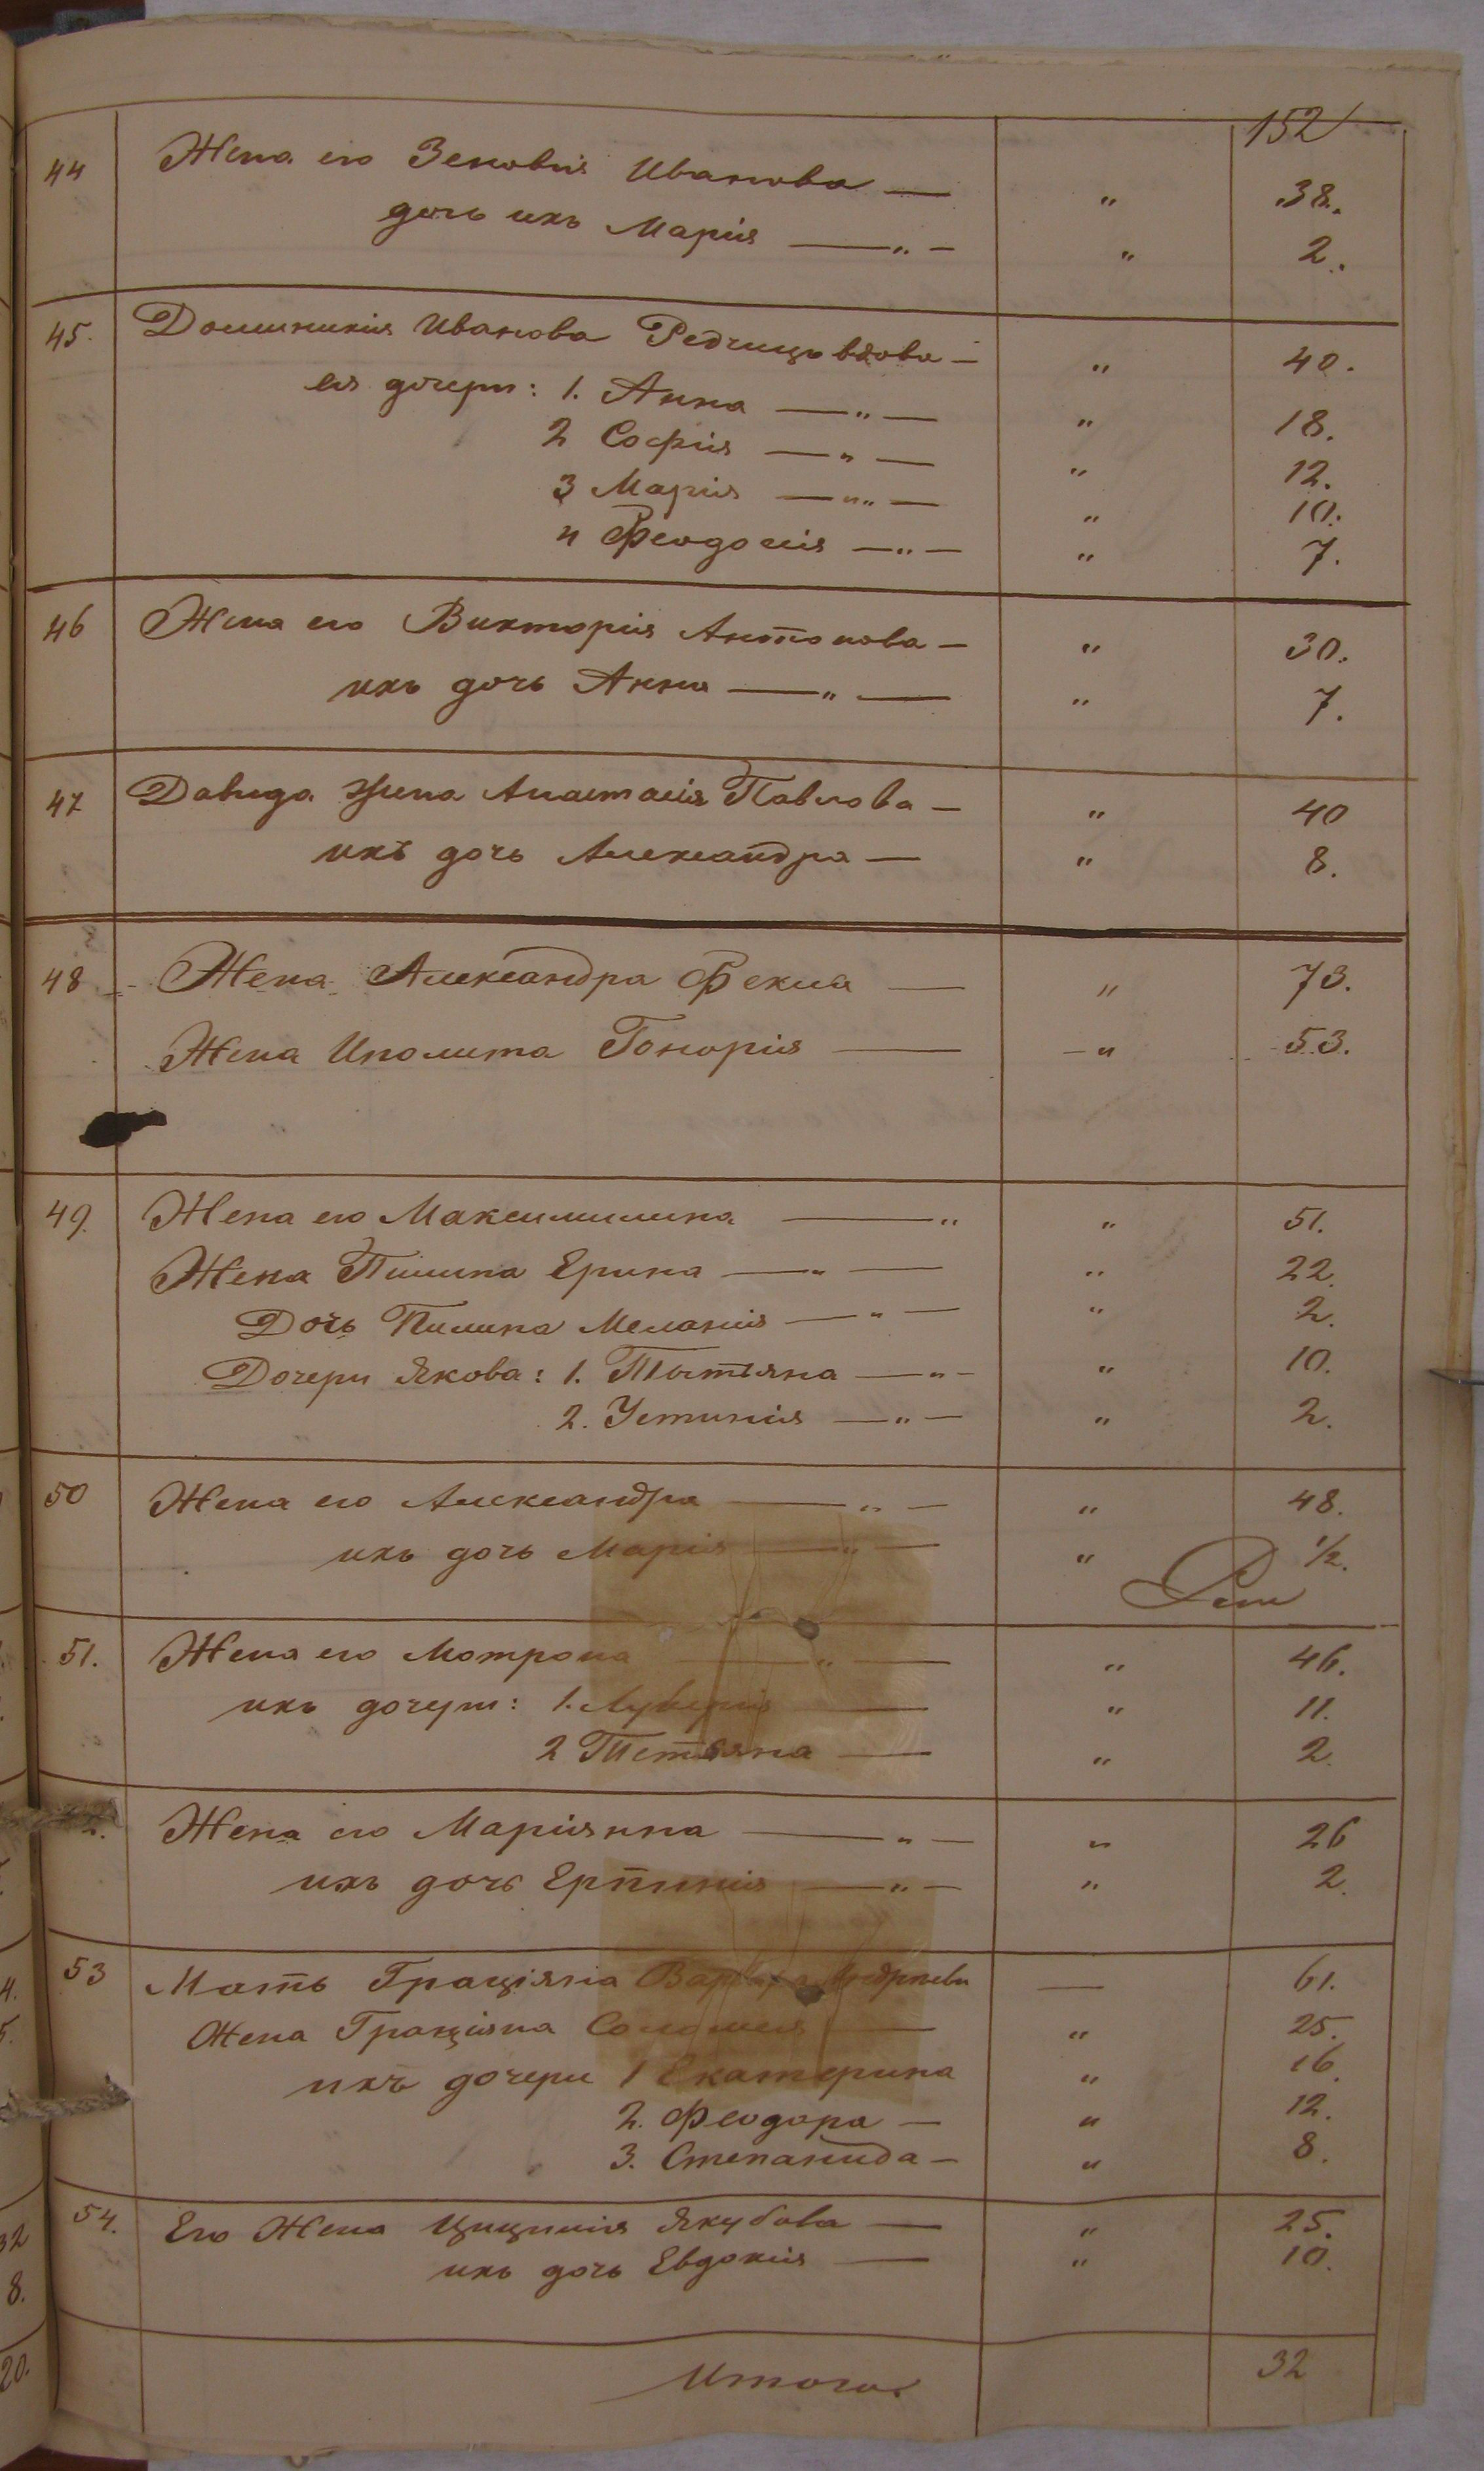 152
44 Жена его Зеновія Иванова — „ 38.
дочь ихъ Марія — „ — „ 2.
45. Домникія Иванова Редчицъ вдова — „ 40.
ея дочери: 1. Анна — „ — „ 18.
2 Софія — „ — „ 12.
3 Марія — „ — „ 10.
4 Феодосія — „ — „ 7.
46 Жена его Викторія Антонова — „ 30.
ихъ дочь Анна — „ — „ 7.
47 Давида жена Анастасія Павлова — „ 40
ихъ дочь Александра — „ 8.
48 Жена Александра Фекла — „ 73.
Жена Иполита Гонорія — „ 53.
49. Жена его Максимилина — „ „ 51.
Жена Пилипа Ерина — „ — „ 22.
Дочь Пилипа Меланія — „ — „ 2.
Дочери Якова: 1. Тытьяна — „ — „ 10.
2. Устинія — „ — „ 2.
50 Жена его Александра — „ — „ 48.
ихъ дочь Марія — „ — „ 1/2.
51. Жена его Мотрона — „ — „ 46.
ихъ дочери: 1. Лукерія — „ 11.
2 Тетьяна — „ 2.
Жена его Маріянна — „ — „ 26
ихъ дочь — „ — „ 2.
53 Мать Граціяна Варвара — 61.
Жена Граціяна Соломея — „ 25.
ихъ дочери 1 Екатерина „ 16.
2. Феодора — „ 12.
3. Степанида — „ 8.
54. Его Жена Цицилія Якубова — „ 25.
ихъ дочь Евдокія — „ 10.
Итого. 32